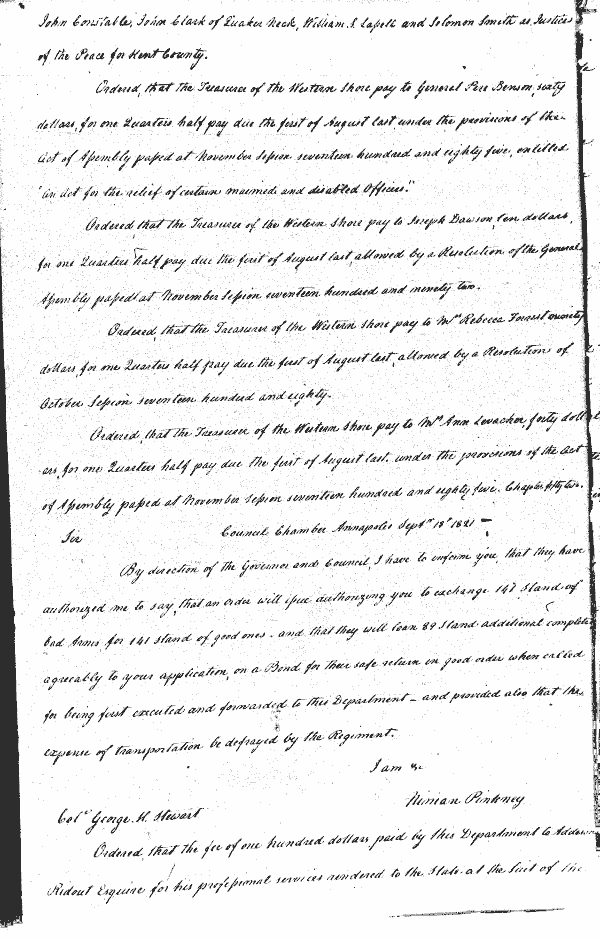 John Constable, John Clark of Quaker Neck, William S. Lapell and Solomon Smith as Justices
of the Peace for Kent County.
Ordered, that the Treasurer of the Western Shore pay to General Pere Benson, sixty
dollars, for one Quarters half pay due the first of August last, under the provisions of the
Act of Assembly passed at November Session seventeen hundred and eighty five, entitled
"an act for the relief of certain maimed and disabled Officers."
Ordered that the Treasurer of the Western Shore pay to Joseph Dawson, ten dollars,
for one Quarters half pay due the first of August last, allowed by a Resolution of the General
Assembly passed at November Session seventeen hundred and ninety two.
Ordered, that the Treasurer of the Western Shore pay to Mrs Rebecca Forrest
dollars, for one Quarters half pay due the first of August last, allowed by a Resolution of
October Session seventeen hundred and eighty.
Ordered that the Treasurer of the Western Shore pay to Mrs Ann Levacher forty doll
ars, for one Quarters half pay due the first of August last, under the provisions of the Act
of Assembly passed at November Session seventeen hundred and eighty five. Chapter fifty two.
Council Chamber Annapolis Septr 18th 1821
Sir
By direction of the Governor and Council, I have to inform you, that they have
authorized me to say, that an order will issue authorizing you to exchange 141 Stand of
bad Arms for 141 Stand of good ones - and that they will loan 89 Stand additional complete
agreeably to your application, on a Bond for their safe return in good order when called
for being first executed and forwarded to this Department - and provided also that the
expense of transportation be defrayed by the Regiment.
I am &c
Ninian Pinkney
Col George H. Stewart
Ordered, that the fee of one hundred dollars paid by this Department to Addison
Ridout Esquire for his professional services rendered to the State at the Suit of the